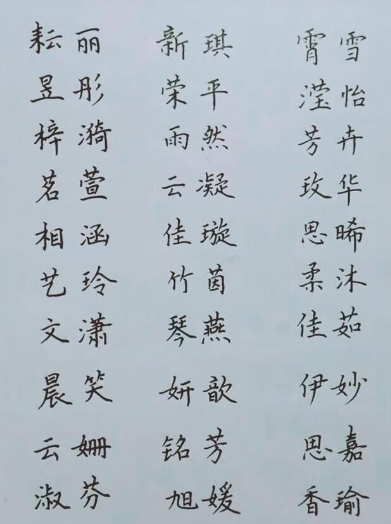 耘丽 新琪 霄雪
昱彤 荣平 滢怡
梓漪 雨然 芳卉
茗萱 云凝 玫华
相涵 佳璇 思晞
艺玲 竹茵 柔沐
文潇 琴燕 佳茹
晨笑 妍歆 伊妙
云姗 铭芳 思嘉
淑芬 旭媛 香瑜